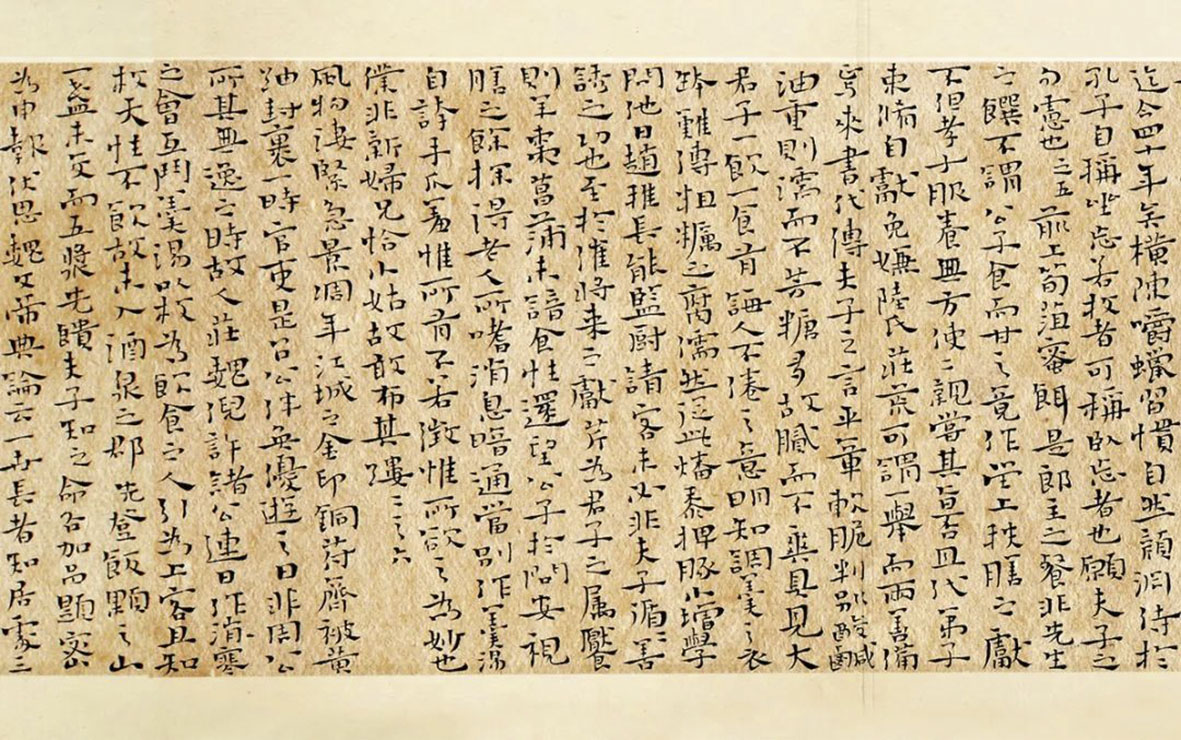 迄今四十年矣橫陳嚼蠟習慣自然顏淵侍於
孔子自稱坐忘若牧者可稱臥忘者也願夫子之
勿慮也之五 前上筍菹蜜餌是郎主之餐非先生
之饌不謂公子食而甘之竟作堂上秧膳之獻
不但孝子服養無方使二親嘗其旨否且代弟子
束脩自獻免嫌陸氏莊荒可謂一舉而兩善備
焉來書代傳夫子之言並輩軟脆判別酸鹹
油重則濡而不芸糖多故膩而不爽具見大
君子一飲一食有誨人不倦之意明知調羹之衣
缽難傳粗糲之腐濡然從此燔黍捭豚小壻學
問他日趙稚長能監廚請客未必非夫子循循善
誘之功也至於灌將來之獻芹為君子之屬饜
則羊棗菖蒲未諳食性還望公子於問安視
膳之餘探得老人所嗜消息暗通當別作羹湯
自詳手爪羞惟所有不若徵惟所欲之為妙也
僕非新婦兄恰小姑故敢布其瓌之六
風物淒緊急景凋年江城之金印銅符齊被黃
紬封裹一時官吏是召公伴奐優遊之日非周公
所其無逸之時故人莊魏倪許諸公連日作消寒
之會互鬥羹湯以枚為飲食之人引為上客且知
枚天性不飲故未入酒泉之郡先登飯顆之山
一盞未交而五漿先饋夫子知之命名加品題密
為申報伏思魏文帝典論云一世長者知居處三